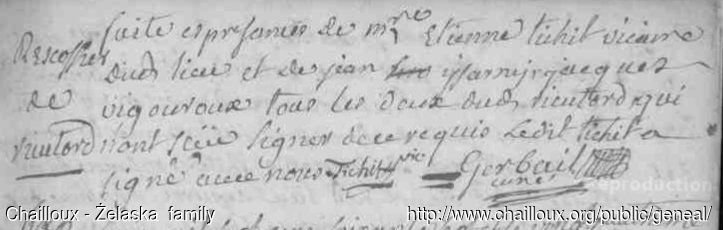 Rescossier
de
rieutord
faite es presances de mre Etienne tichit vicaire
dud lieu et de jean issarni jacques
vigouroux tous les deux dud rieutord qui
n'ont sçeu signer de ce requis Ledit tichit a
signé avec nous Tichit vic Gerbail
curé
reproduction
Chailloux - Želaska family http://www.chailloux.org/public/geneal/